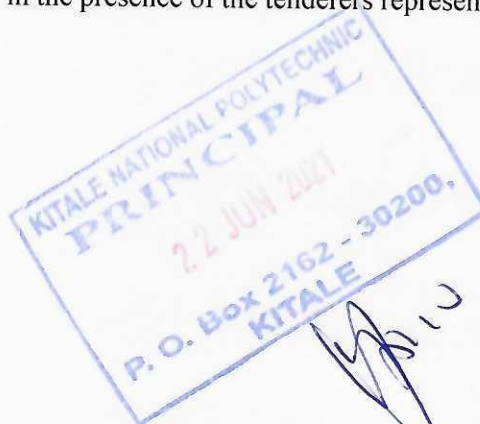 in the presence of the tenderers represen
KITALE NATIONAL POLYTECHNIC
PRINCIPAL
22 JUN 2021
P. O. Box 2162 - 30200,
KITALE